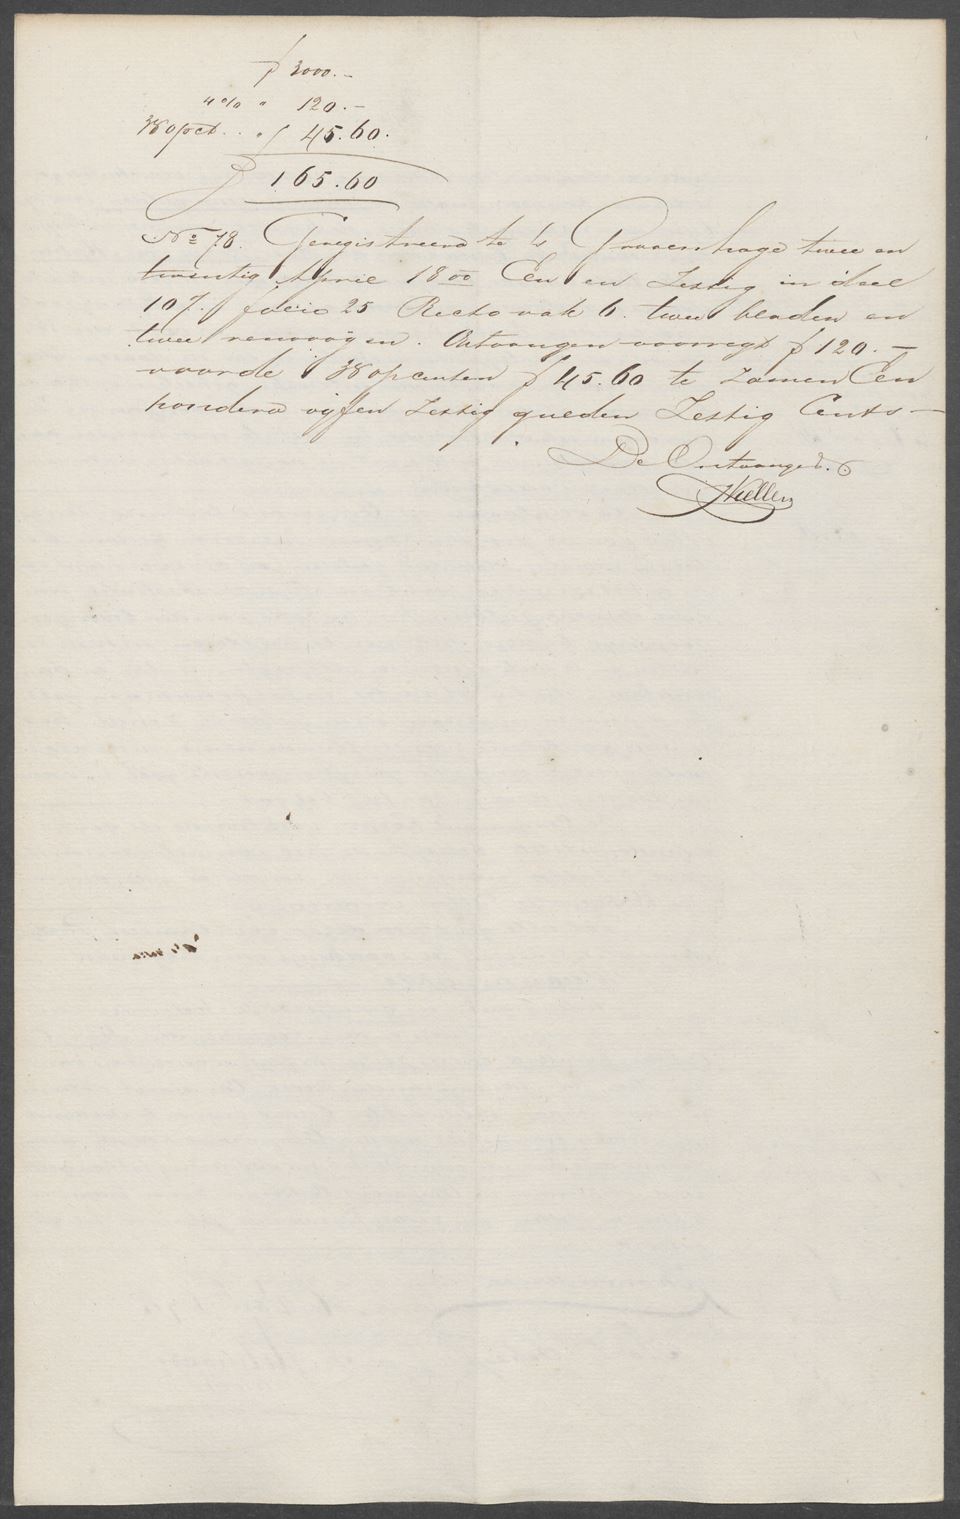 ƒ 3000.-
4 % " 120.-
38 opct.. " ƒ 45.60.
ƒ 165.60
No 78. Geregistreerd te 's Gravenhage twee en
twentig April 18 00 Een en Zestig in deel
107. folio 25 Recto vak 6. twee bladen en
twee renvooijen. Ontvangen voorregt ƒ 120.-
voor de 38 opcenten ƒ 45.60 te zamen Een
honderd vijf en Zestig gulden Zestig Cents-
De Ontvanger.